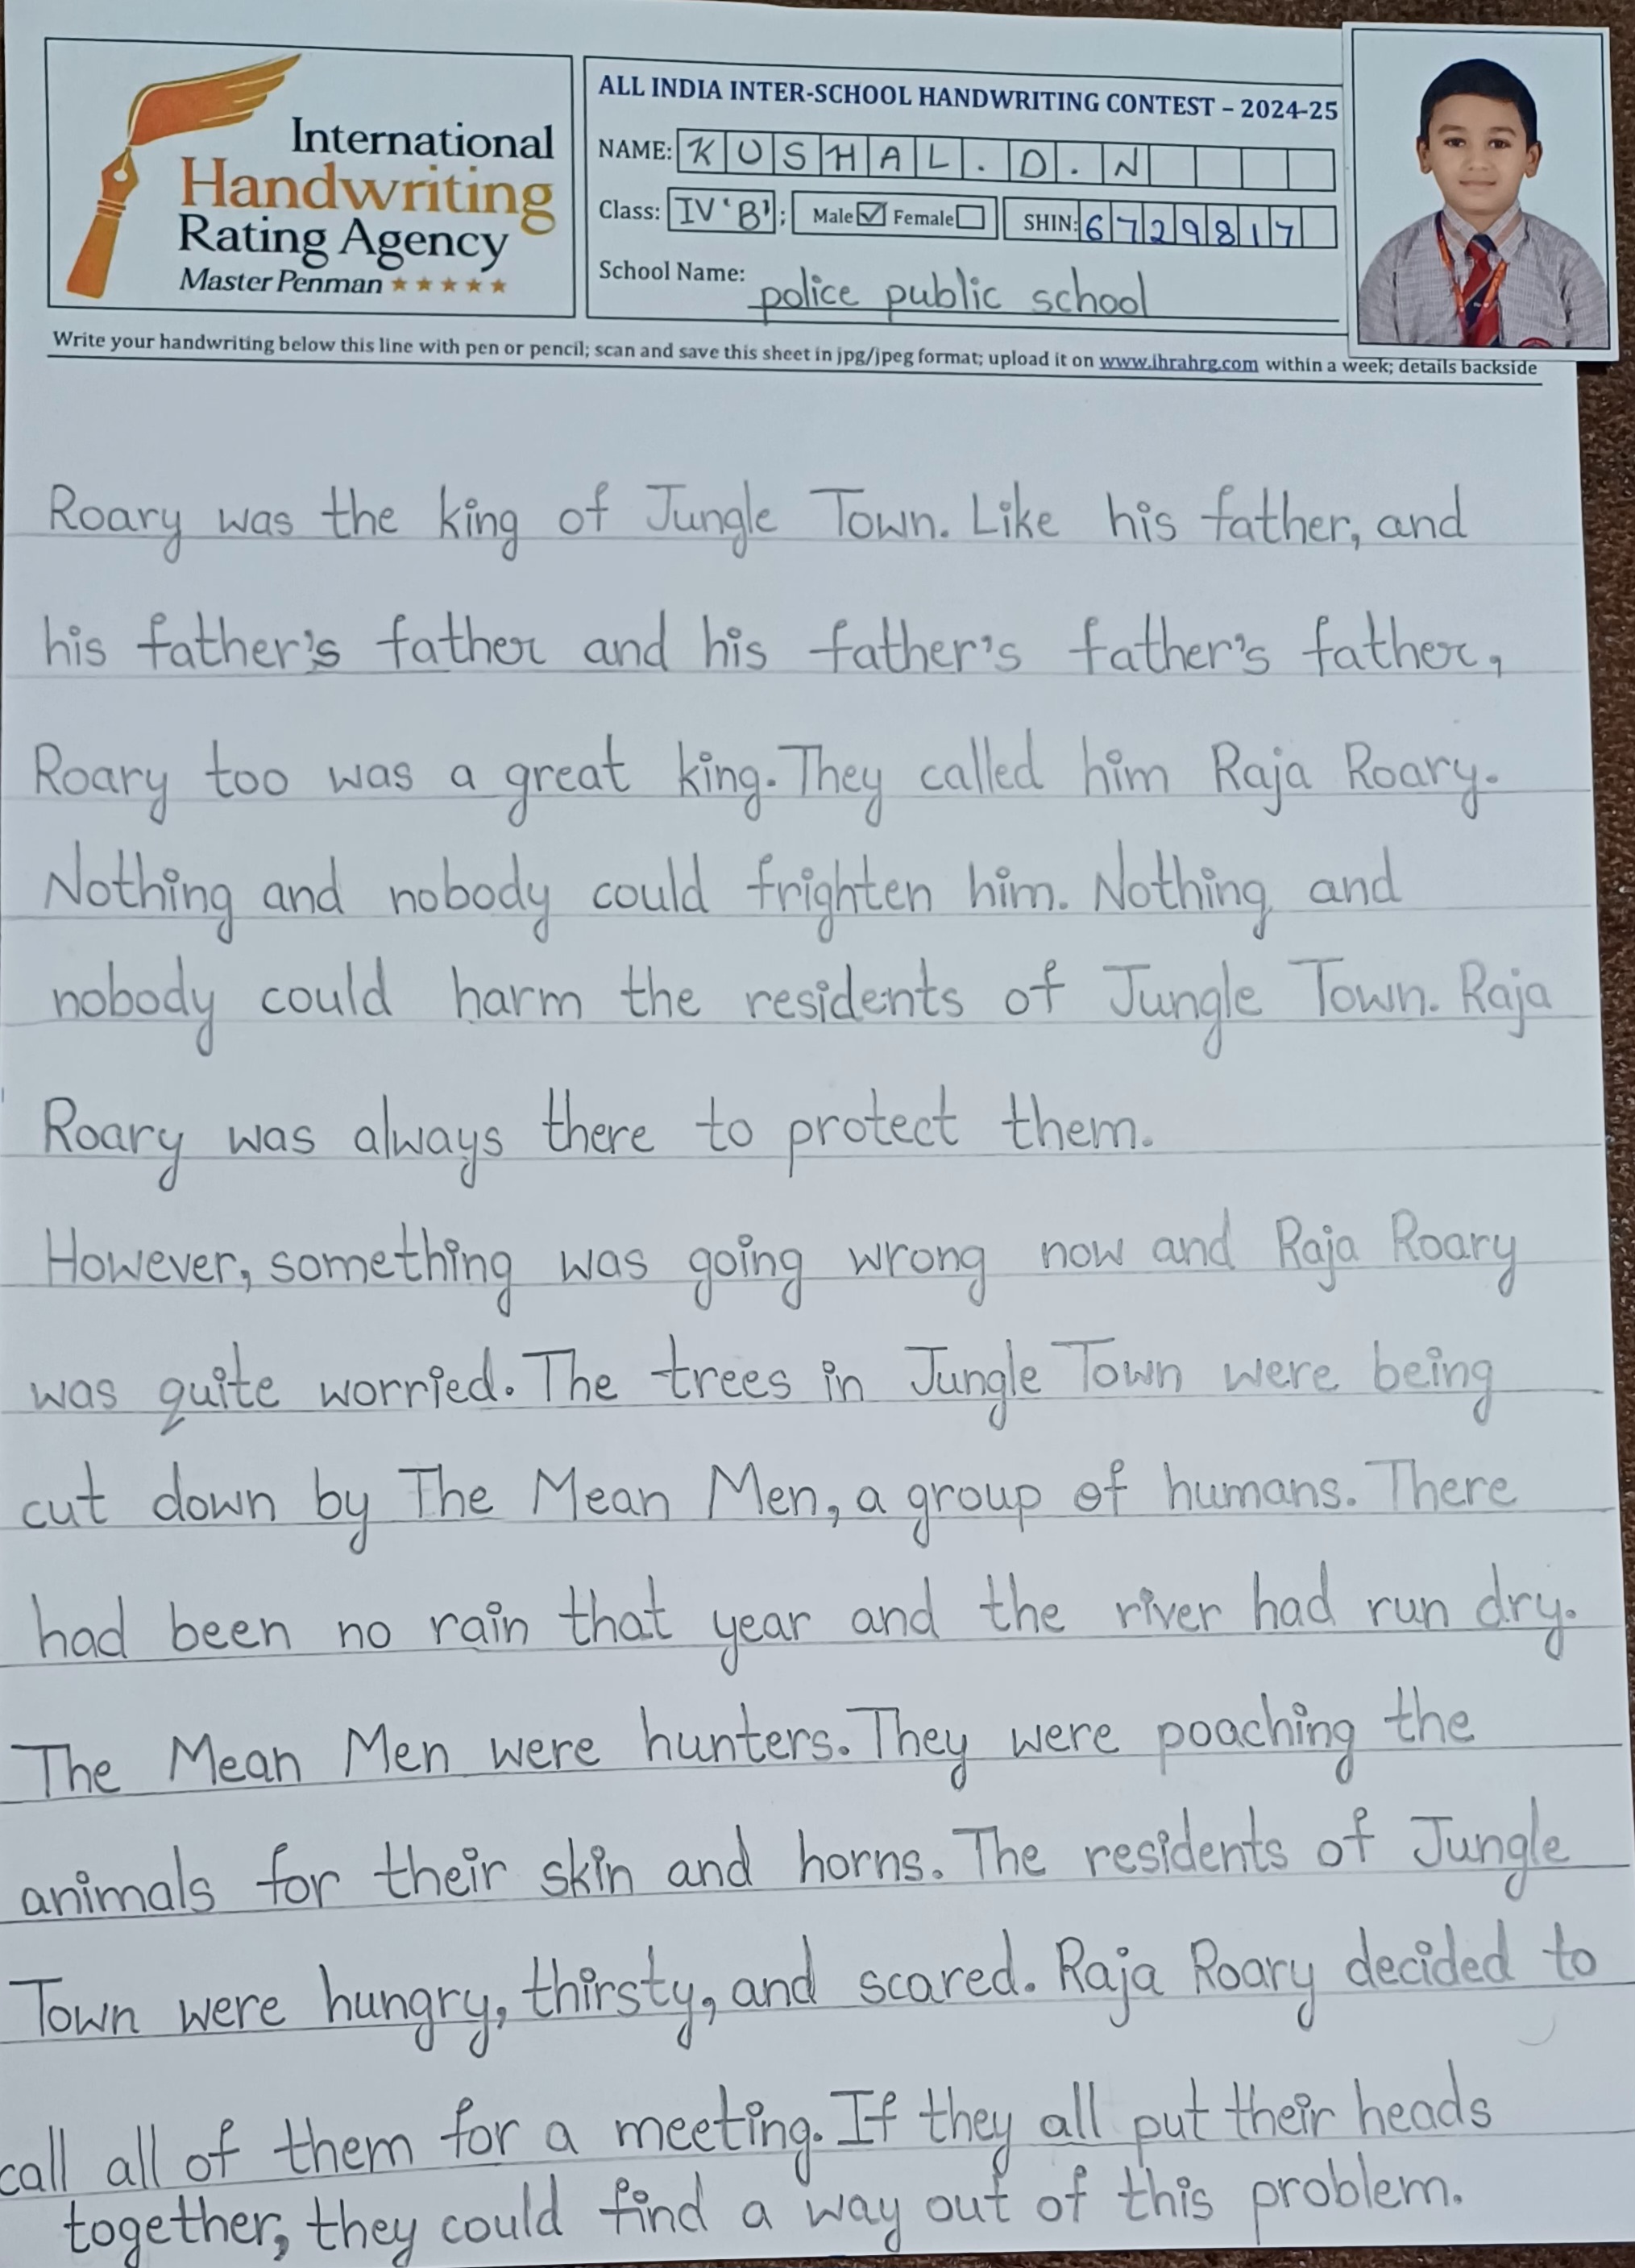 International
Handwriting
Rating Agency
Master Penman ★★★★★
ALL INDIA INTER-SCHOOL HANDWRITING CONTEST – 2024-25
NAME: KUSHAL.D.N
Class: IV 'B'; Male ☑ Female ☐ SHIN: 6729817
School Name: police public school
Write your handwriting below this line with pen or pencil; scan and save this sheet in jpg/jpeg format; upload it on www.ihrahrg.com within a week; details backside
Roary was the king of Jungle Town. Like his father, and
his father's father and his father's father's father,
Roary too was a great king. They called him Raja Roary.
Nothing and nobody could frighten him. Nothing and
nobody could harm the residents of Jungle Town. Raja
Roary was always there to protect them.
However, something was going wrong now and Raja Roary
was quite worried. The trees in Jungle Town were being
cut down by The Mean Men, a group of humans. There
had been no rain that year and the river had run dry.
The Mean Men were hunters. They were poaching the
animals for their skin and horns. The residents of Jungle
Town were hungry, thirsty, and scared. Raja Roary decided to
call all of them for a meeting. If they all put their heads
together, they could find a way out of this problem.